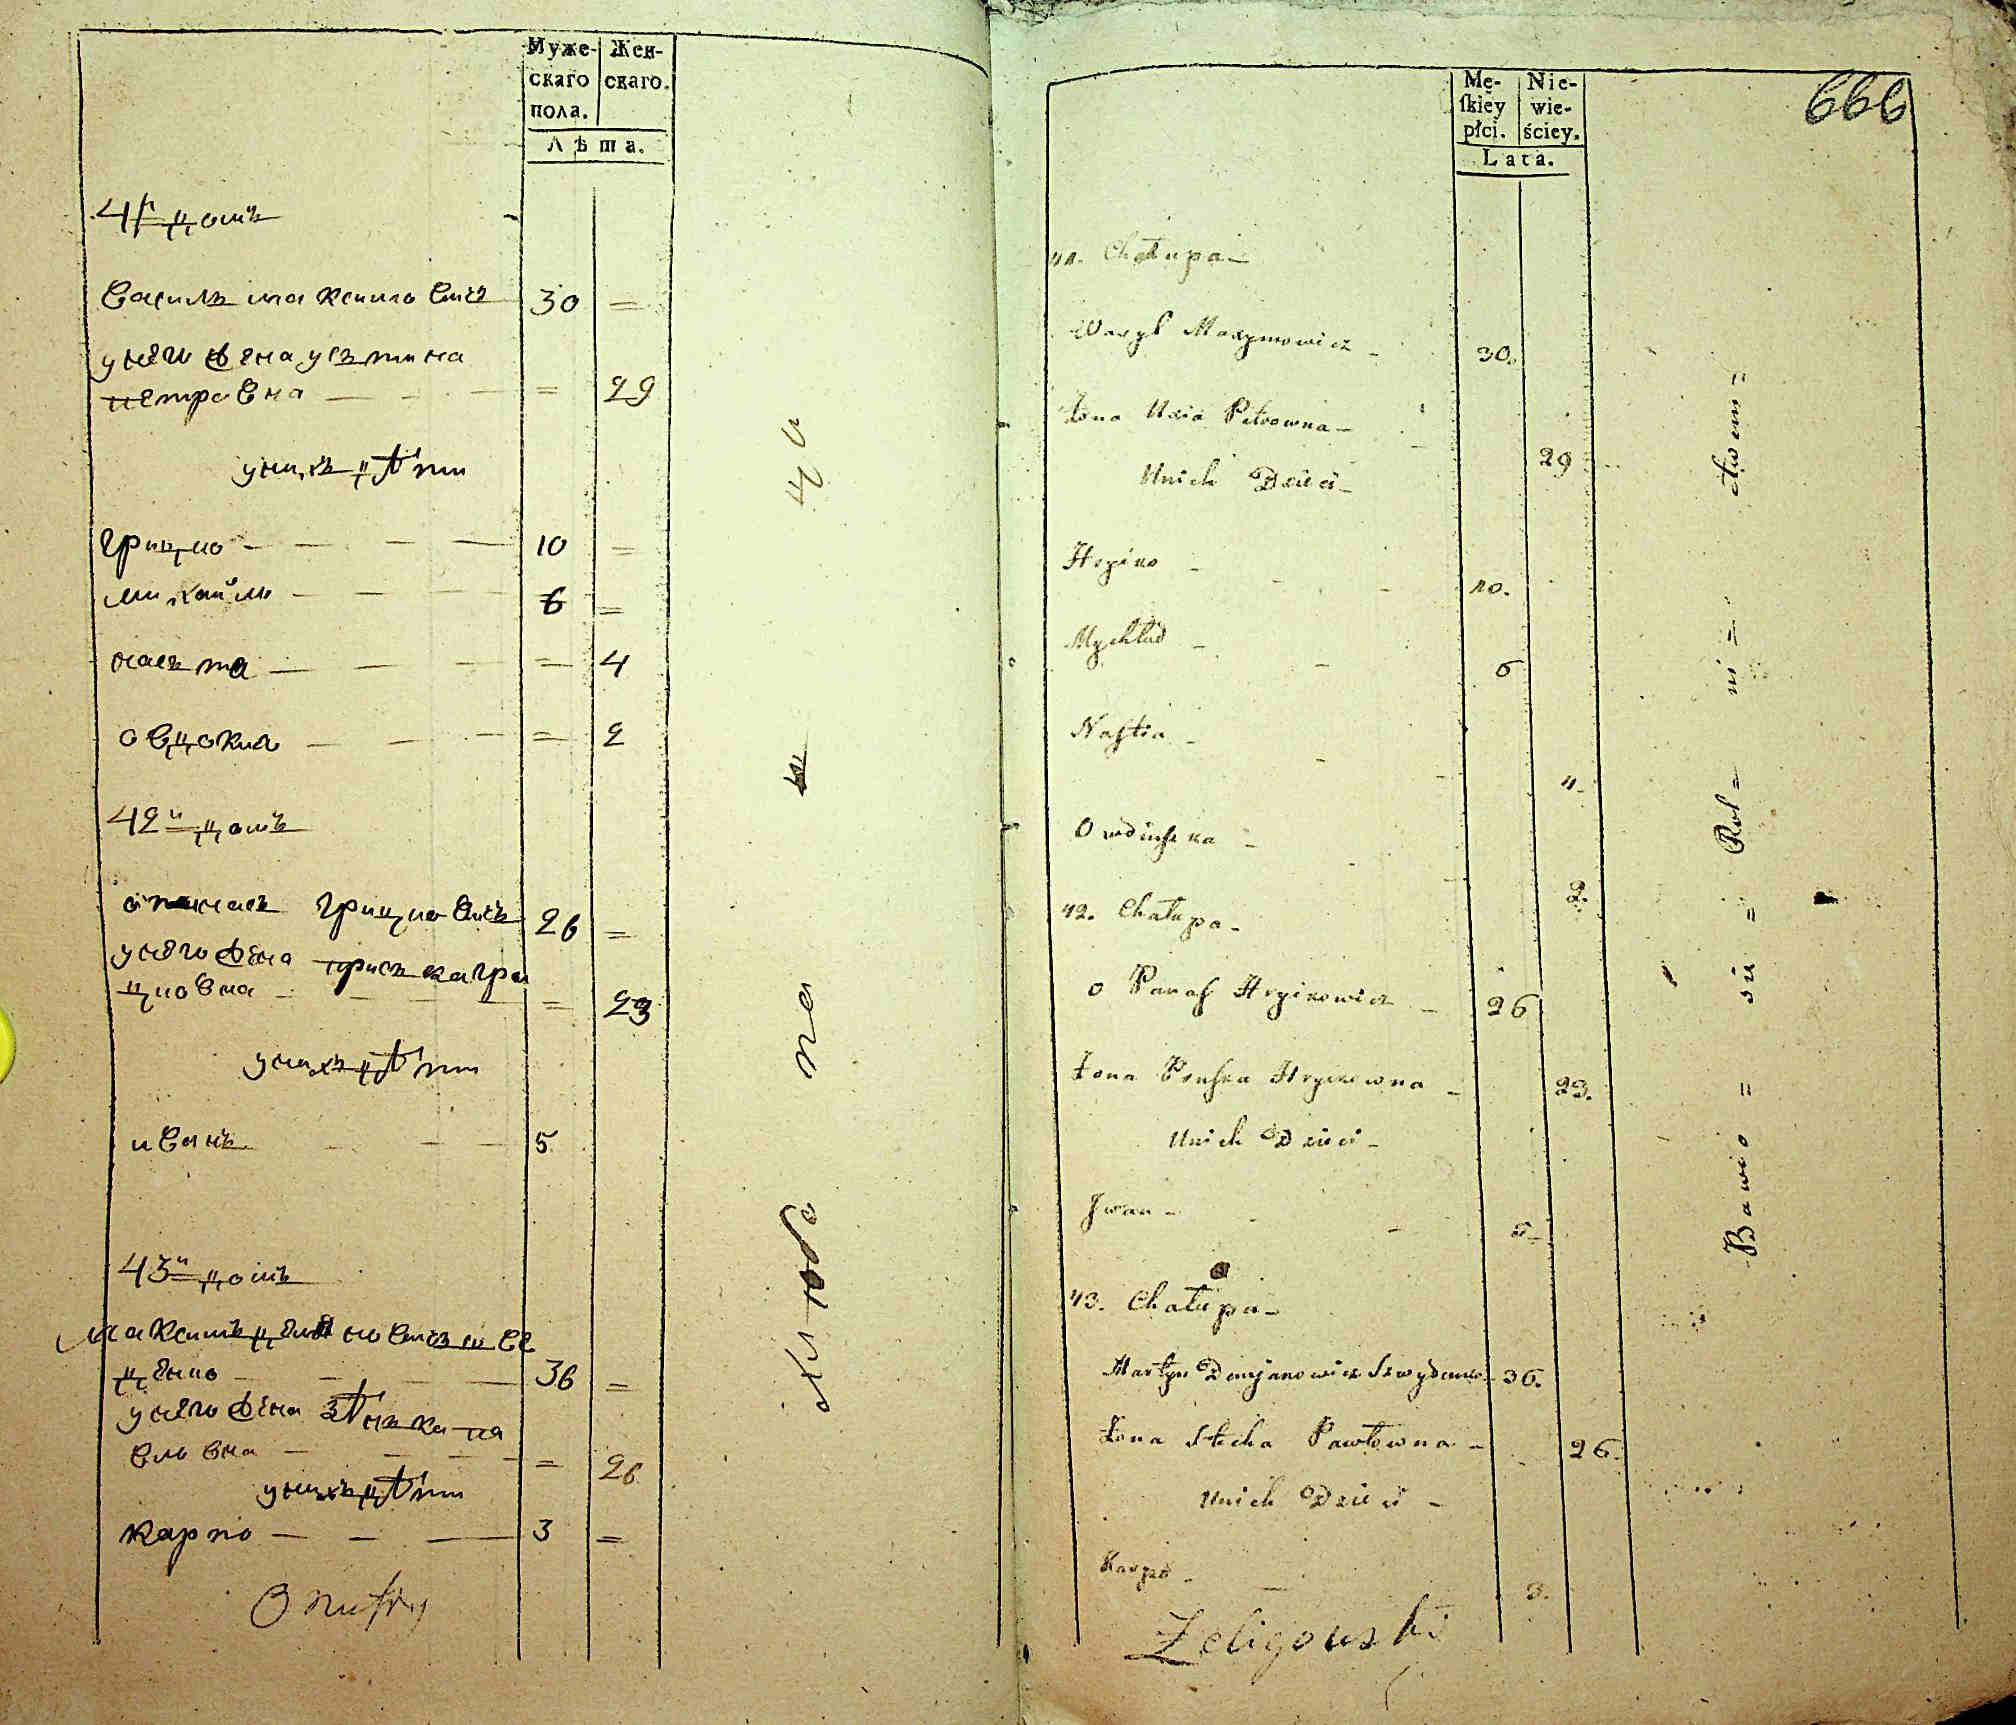 Муже-
скаго
пола.
Жен-
скаго.
Лѣта.
41й домъ
Василь максимовичъ 30 =
у него жена усътина
петровна — = 29
у нихъ дѣти
грицко — 10 =
михайло — 6 =
насътя — = 4
овдокия — = 2
42й домъ
опанасъ грицковичъ 26 =
у него жена присъка гри
цковна — = 23
у нихъ дѣти
иванъ — 5
43й домъ
максимъ демяновичъ шве
денко — 36 =
у него жена стѣнька па
вловна — = 26
у нихъ дѣти
карпо — 3 =
Mę-
ſkiey
płci.
Nie-
wie-
ściey.
Lata.
666
41. Chałupa —
Wasyl Maxymowicz — 30.
Żona Uxia Petrowna — 29
Unich Dzieci —
Hryćko — 10.
Mychaiło — 6
Naſtia — 4.
Owdiuſzka — 2.
42. Chałupa —
O Panaſ Hryćkowicz — 26
Żona Pruſka Hryckowna — 23.
Unich Dzieci —
Jwan — 5 —
43. Chałupa —
Martyn Demjanowicz Szwydenko 36.
Żona Stecha Pawłowna — 26.
Unich Dzieci —
Karpo — 3.
Żeligowski